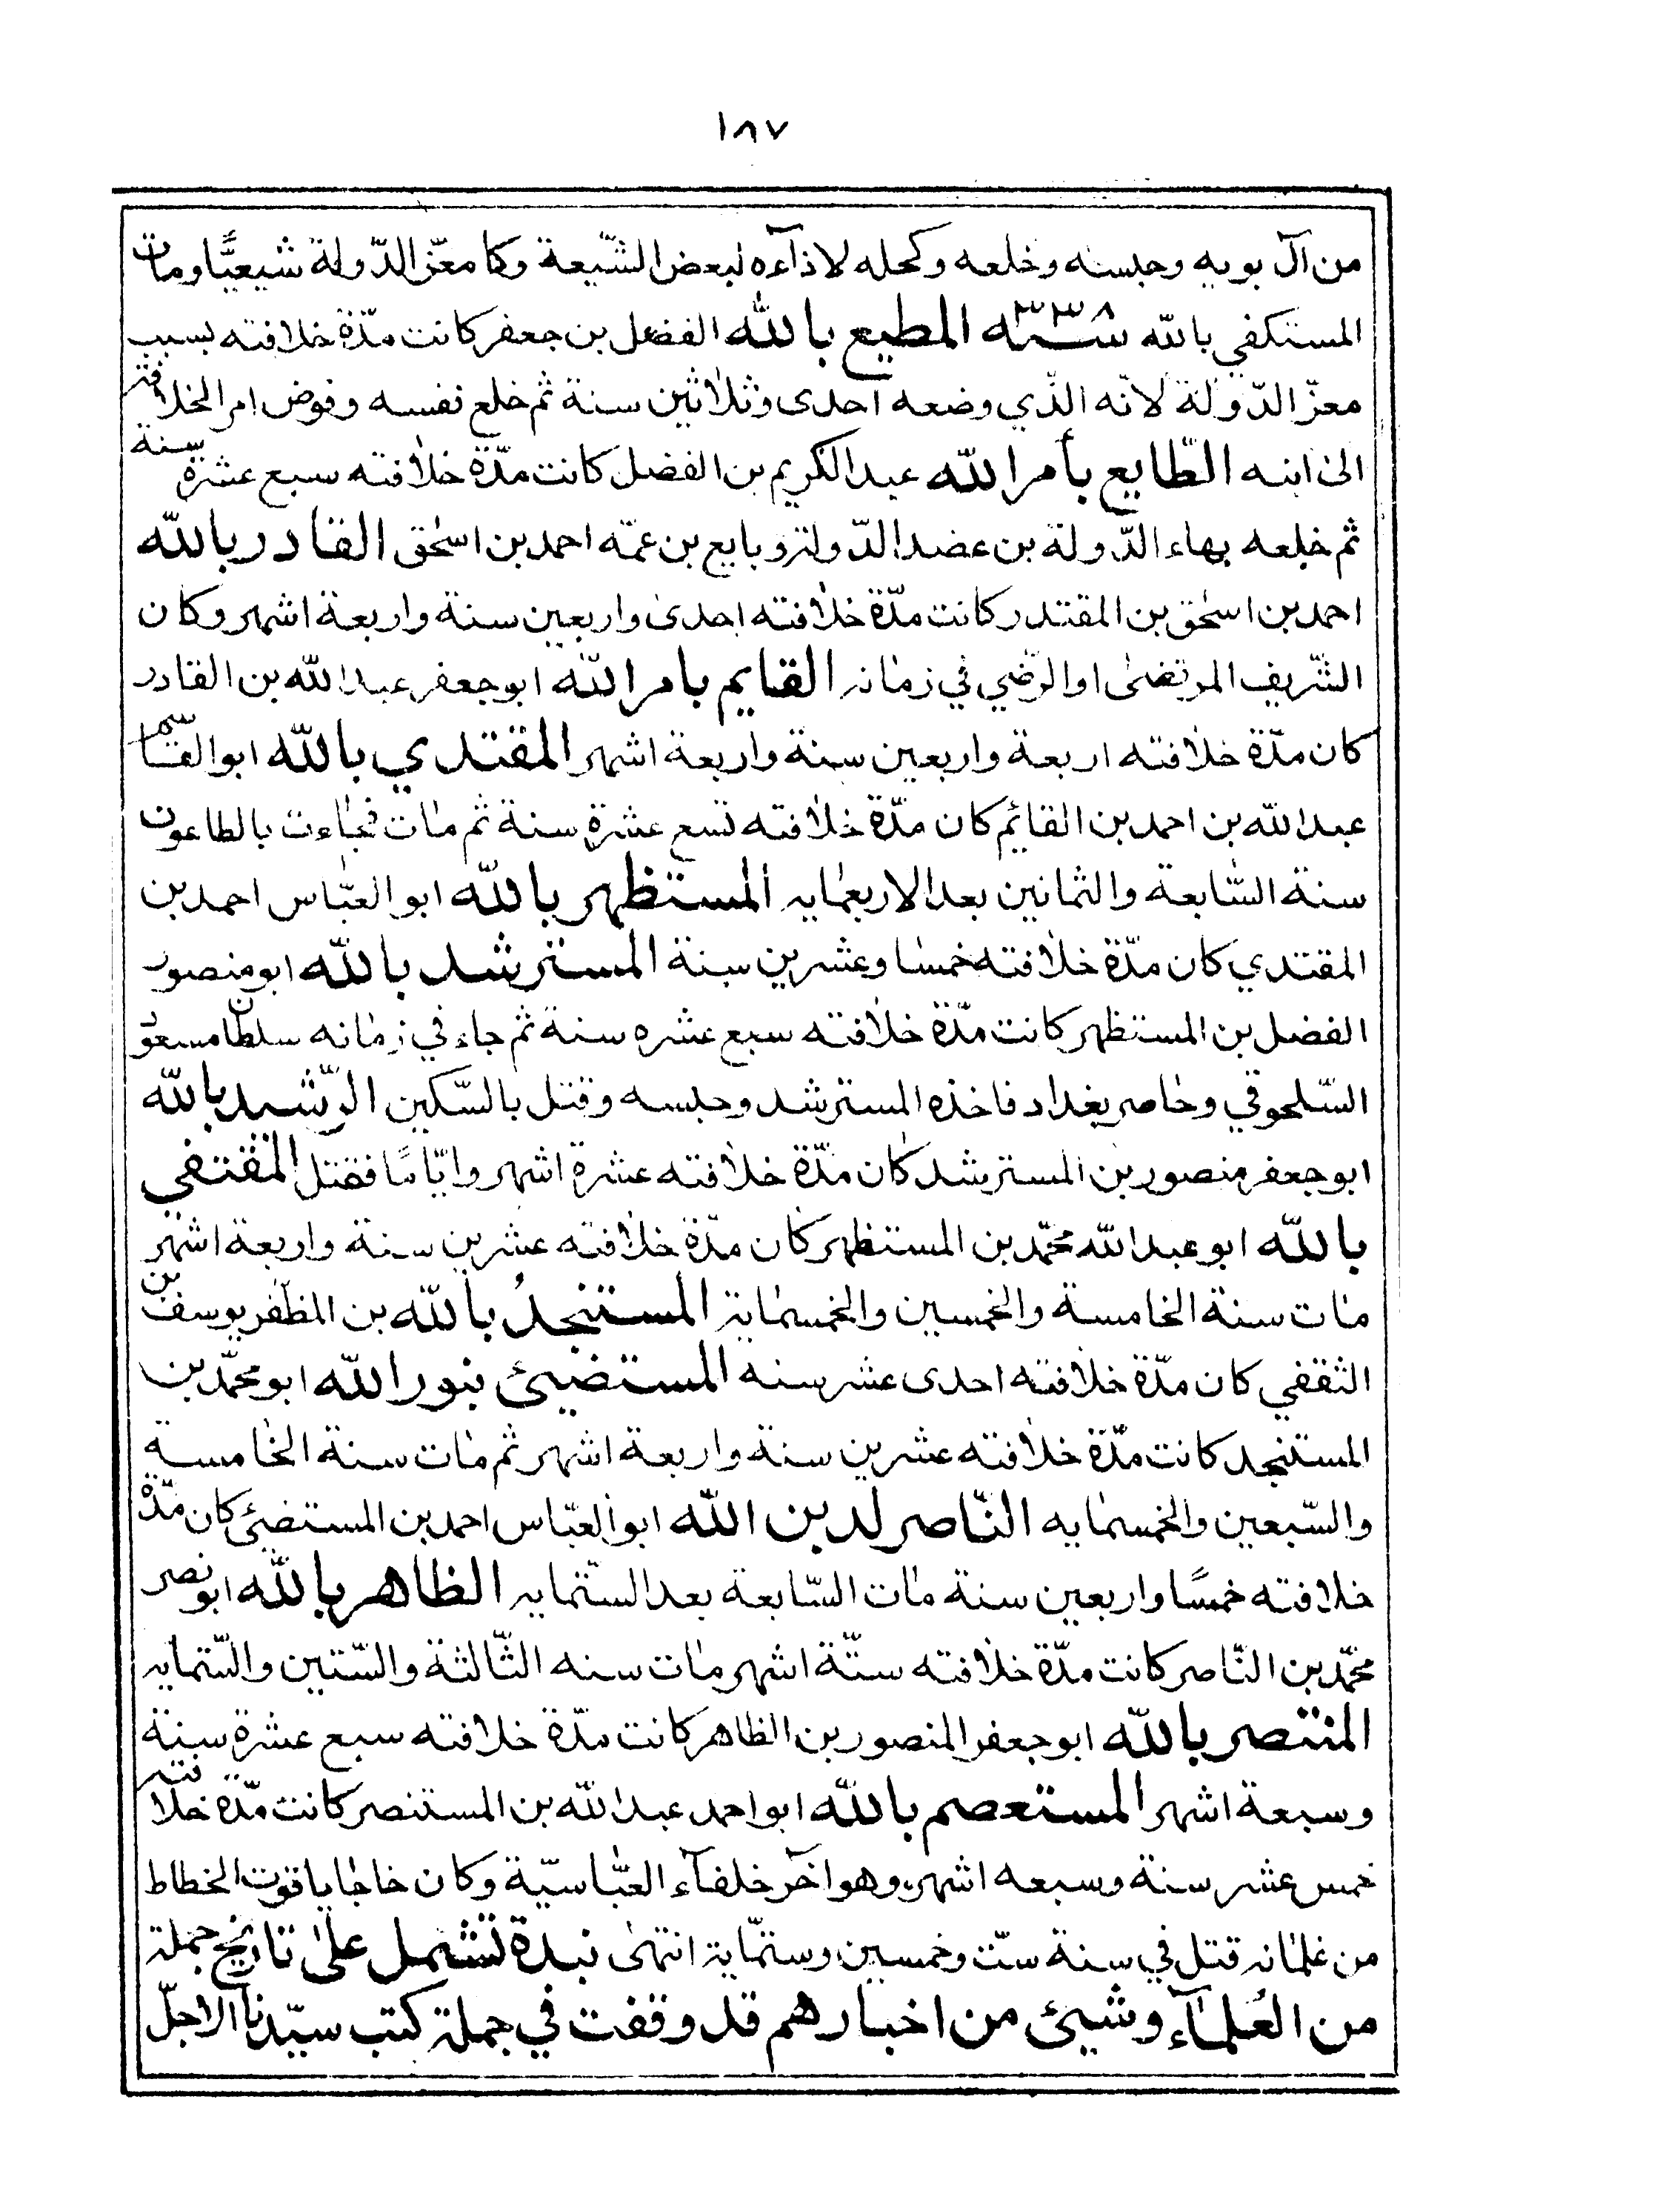 ١٨٧
من آل بويه وحبسه وخلعه وكحله لاذآءه لبعض الشّيعة وكا معزّ الدّولة شيعيًّا ومات
المستكفي بالله سنة ٣٣٨ المطيع بالله الفضل بن جعفر كانت مدّة خلافته بسبب
معزّ الدّولة لانّه الذّي وضعه احدى وثلاثين سنة ثم خلع نفسه وفوض امر الخلافة
الى ابنه الطّايع بأمر الله عبد الكريم بن الفضل كانت مدّة خلافته سبع عشرة سنة
ثم خلعه بهاء الدّولة بن عضد الدّولة وبايع بن عمّه احمد بن اسحق القادر بالله
احمد بن اسحق بن المقتدر كانت مدّة خلافته احدى واربعين سنة واربعة اشهر وكان
الشّريف المرتضى او الرّضي في زمانه القايم بامر الله ابو جعفر عبد الله بن القادر
كان مدّة خلافته اربعة واربعين سنة واربعة اشهر المقتدي بالله ابو القاسم
عبد الله بن احمد بن القائم كان مدّة خلافته تسع عشرة سنة ثم مات فجاءت بالطاعون
سنة السّابعة والثمانين بعد الاربعمايه المستظهر بالله ابو العبّاس احمد بن
المقتدي كان مدّة خلافته خمسا وعشرين سنة المسترشد بالله ابو منصور
الفضل بن المستظهر كانت مدّة خلافته سبع عشره سنة ثم جاء في زمانه سلطان مسعود
السّلجوقي وحاصر بغداد فاخذه المسترشد وحبسه وقتل بالسّكين الرّشيد بالله
ابو جعفر منصور بن المسترشد كان مدّة خلافته عشرة اشهر وايّامًا فقتل المقتفي
بالله ابو عبد الله محمّد بن المستظهر كان مدّة خلافته عشرين سنة واربعة اشهر
مات سنة الخامسة والخمسين والخمسماية المستنجدُ بالله بن المظفر يوسف بن
الثقفي كان مدّة خلافته احدى عشر سنه المستضيئ بنور الله ابو محمّد بن
المستنجد كانت مدّة خلافته عشرين سنة واربعة اشهر ثم مات سنة الخامسة
والسّبعين والخمسمايه النّاصر لدين الله ابو العبّاس احمد بن المستضئ كان مدّة
خلافته خمسًا واربعين سنة مات السّابعة بعد السّتمايه الظاهر بالله ابو نصر
محمّد بن النّاصر كانت مدّة خلافته ستّة اشهر مات سنه الثّالثة والسّتين والسّتمايه
المنتصر بالله ابو جعفر المنصور بن الظاهر كانت مدّة خلافته سبع عشرة سنة
وسبعة اشهر المستعصم بالله ابو احمد عبد الله بن المستنصر كانت مدّة خلافته
خمس عشر سنة وسبعه اشهر وهو آخر خلفآء العبّاسيّة وكان خاجا ياقوت الخطاط
من غلمانه قتل في سنة ستّ وخمسين وستّماية انتهى نبدة تشمل على تاريخ جملة
من العُلمآء وشيئ من اخبارهم قد وقفت في جملة كتب سيّدنا الاجلّ